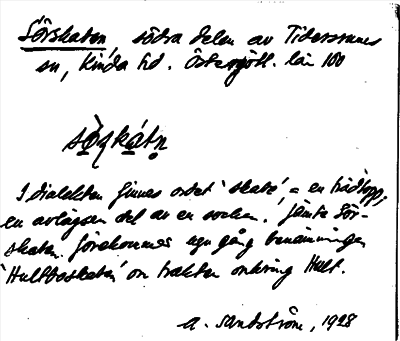 Sörskaten, södra delen av Tidersrums
sn, Kinda hd. Östergötl. län 100
I dialekten finnes ordet 'skate' = en trädtopp,
en avlägsen del av en socken. Jämte Sör-
skaten förekommer en gång benämningen
'Hultboskaten' om trakten omkring Hult.
A. Sandström, 1928